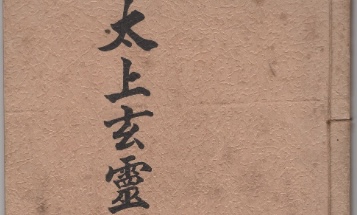 太上玄靈